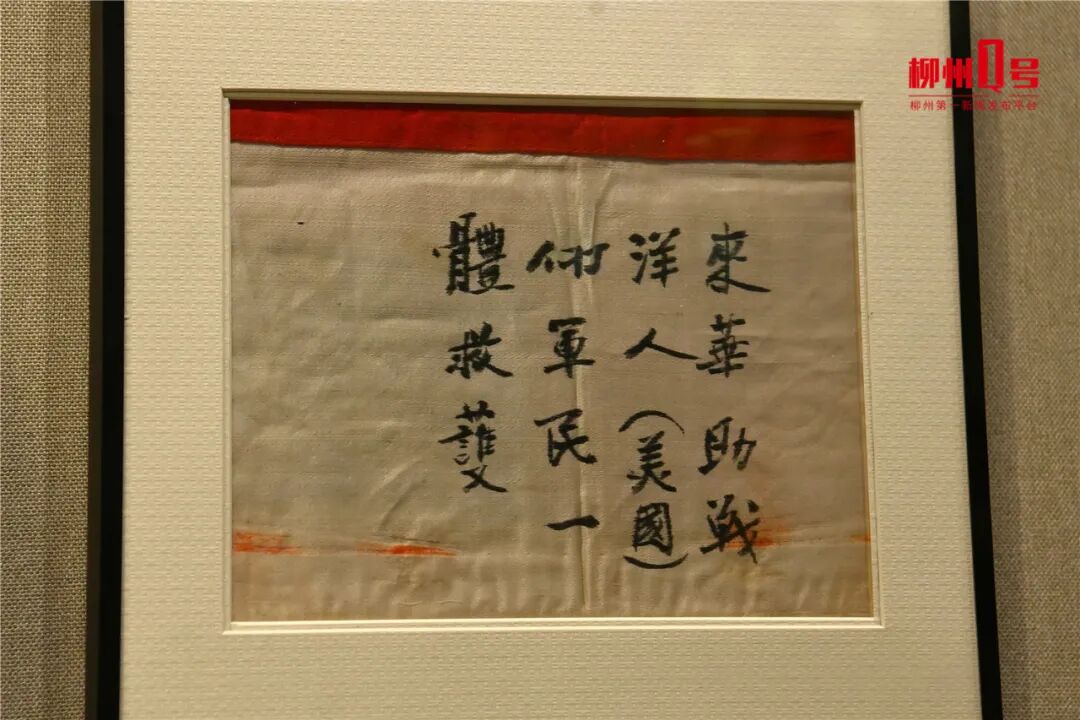 柳州Q号
柳州第一新闻发布平台
來華助戰
洋人(美國)
仰軍民一
體救護